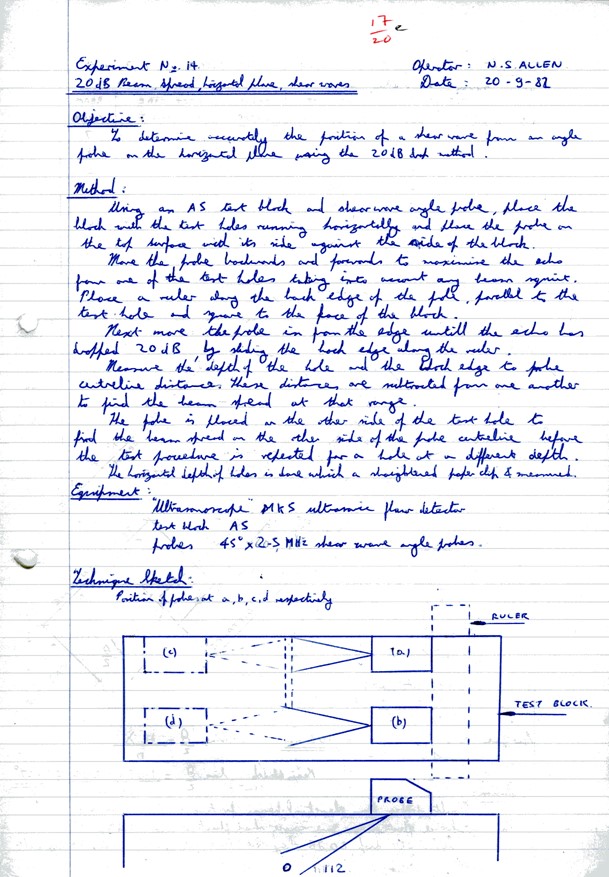 17
20
Experiment No. 14 Operator : N.S.ALLEN
20dB Beam Spread, horizontal plane, shear waves Date : 20-9-82
Objective :
To determine accurately the position of a shear wave from an angle
probe on the horizontal plane using the 20dB drop method.
Method :
Using an AS test block and shearwave angle probe, place the
block with the test holes running horizontally and place the probe on
the top surface with its side against the side of the block.
Move the probe backwards and forwards to maximise the echo
from one of the test holes taking into account any beam squint.
Place a ruler along the back edge of the probe, parallel to the
test hole and square to the face of the block.
Next move the probe in from the edge untill the echo has
dropped 20dB by sliding the back edge along the ruler.
Measure the depth of the hole and the block edge to probe
centreline distance. These distances are subtracted from one another
to find the beam spread at that range.
The probe is placed on the other side of the test hole to
find the beam spread on the other side of the probe centreline before
the test procedure is repeated for a hole at a different depth.
The horizontal depth of holes is done which a straightened paper clip & measured.
Equipment :
"Ultrasonoscope" MKS ultrasonic flaw detector
test block AS
probes 45° x 2.5 MHz shear wave angle probes.
Technique Sketch :
Position of probe at a, b, c, d respectively
RULER
(c) (a)
TEST BLOCK.
(d) (b)
PROBE
O 112